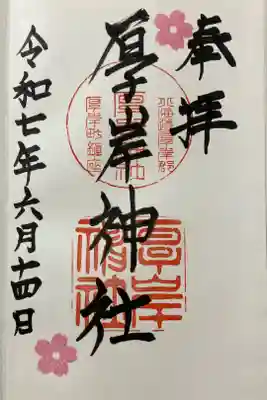 奉拝
厚岸神社
令和七年六月十四日
北海道厚岸郡
厚岸町鎮座
厚岸
神社